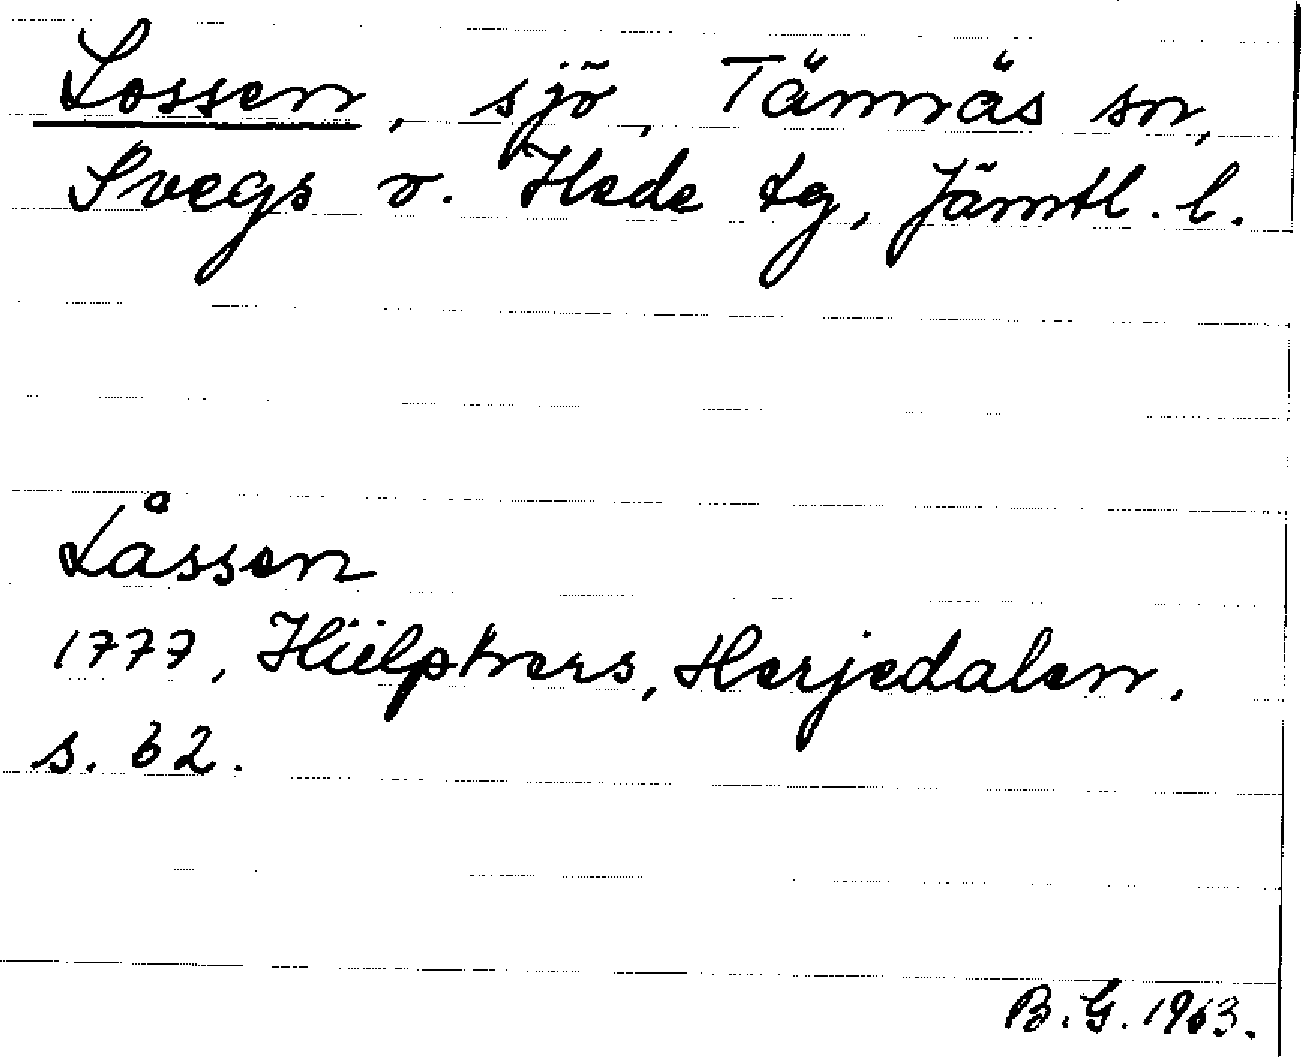 Lossen, sjö, Tännäs sn,
Svegs o. Hede tg, Jämtl. l.
Låssen
1777, Hülphers, Herjedalen.
s. 62.
B.G. 1963.